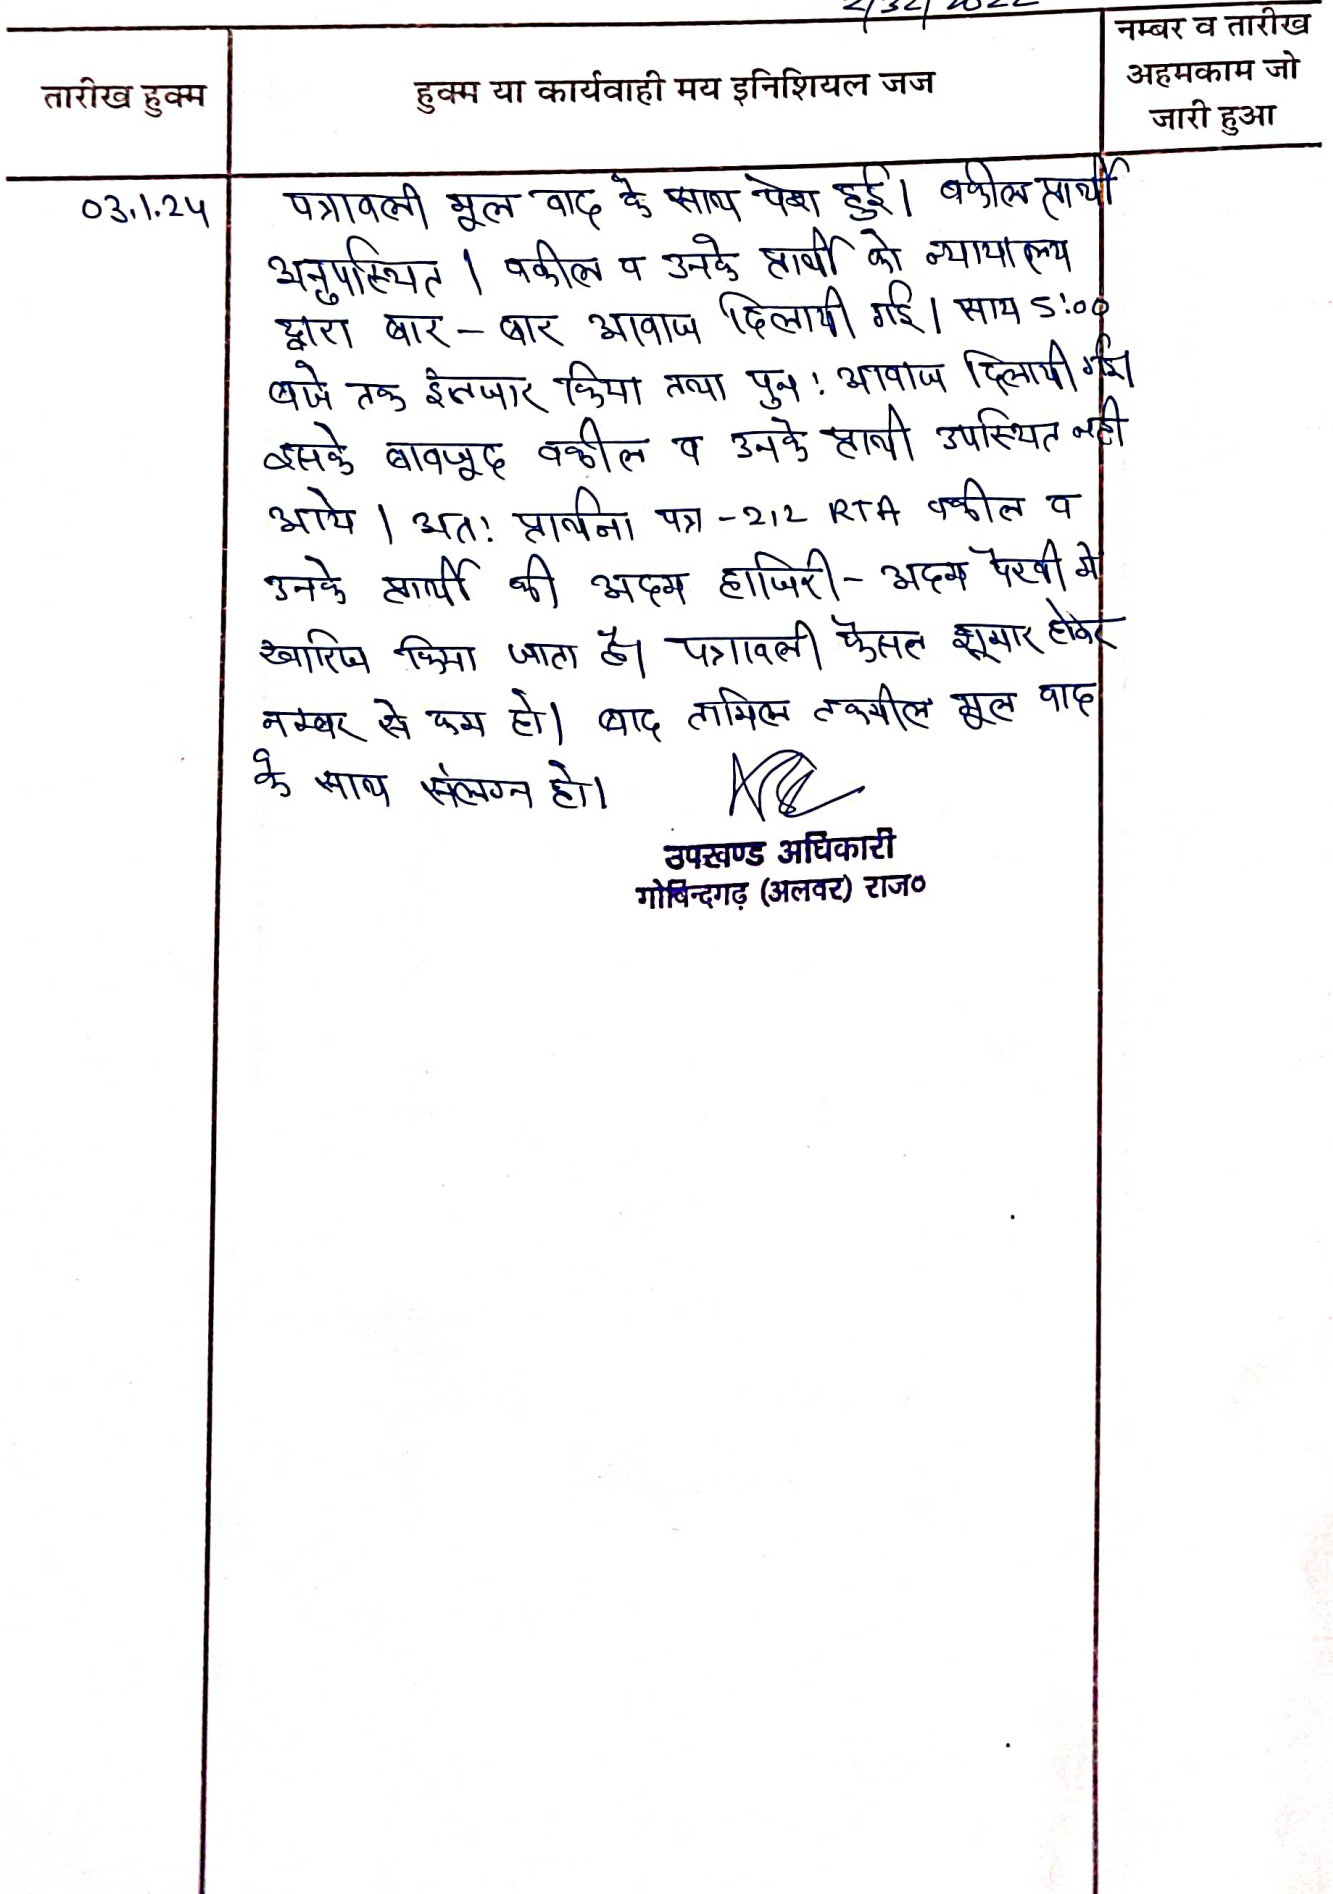 2/32/2022
नम्बर व तारीख
अहमकाम जो
जारी हुआ
तारीख हुक्म
हुक्म या कार्यवाही मय इनिशियल जज
03.1.24
पत्रावली मूल वाद के साथ पेश हुई। वकील प्रार्थी
अनुपस्थित। वकील व उनके प्रार्थी को न्यायालय
द्वारा बार-बार आवाज दिलायी गई। साय 5:00
बजे तक इंतजार किया तथा पुन: आवाज दिलायी गई।
इसके बावजूद वकील व उनके प्रार्थी उपस्थित नही
आये। अत: प्रार्थना पत्र -212 RTA वकील व
उनके प्रार्थी की अदम हाजिरी-अदम पैरवी मे
खारिज किया जाता है। पत्रावली फैसल शूमार होकर
नम्बर से कम हो। बाद तामिल तकमील मूल वाद
के साथ संलग्न हो।
उपखण्ड अधिकारी
गोविन्दगढ़ (अलवर) राज०